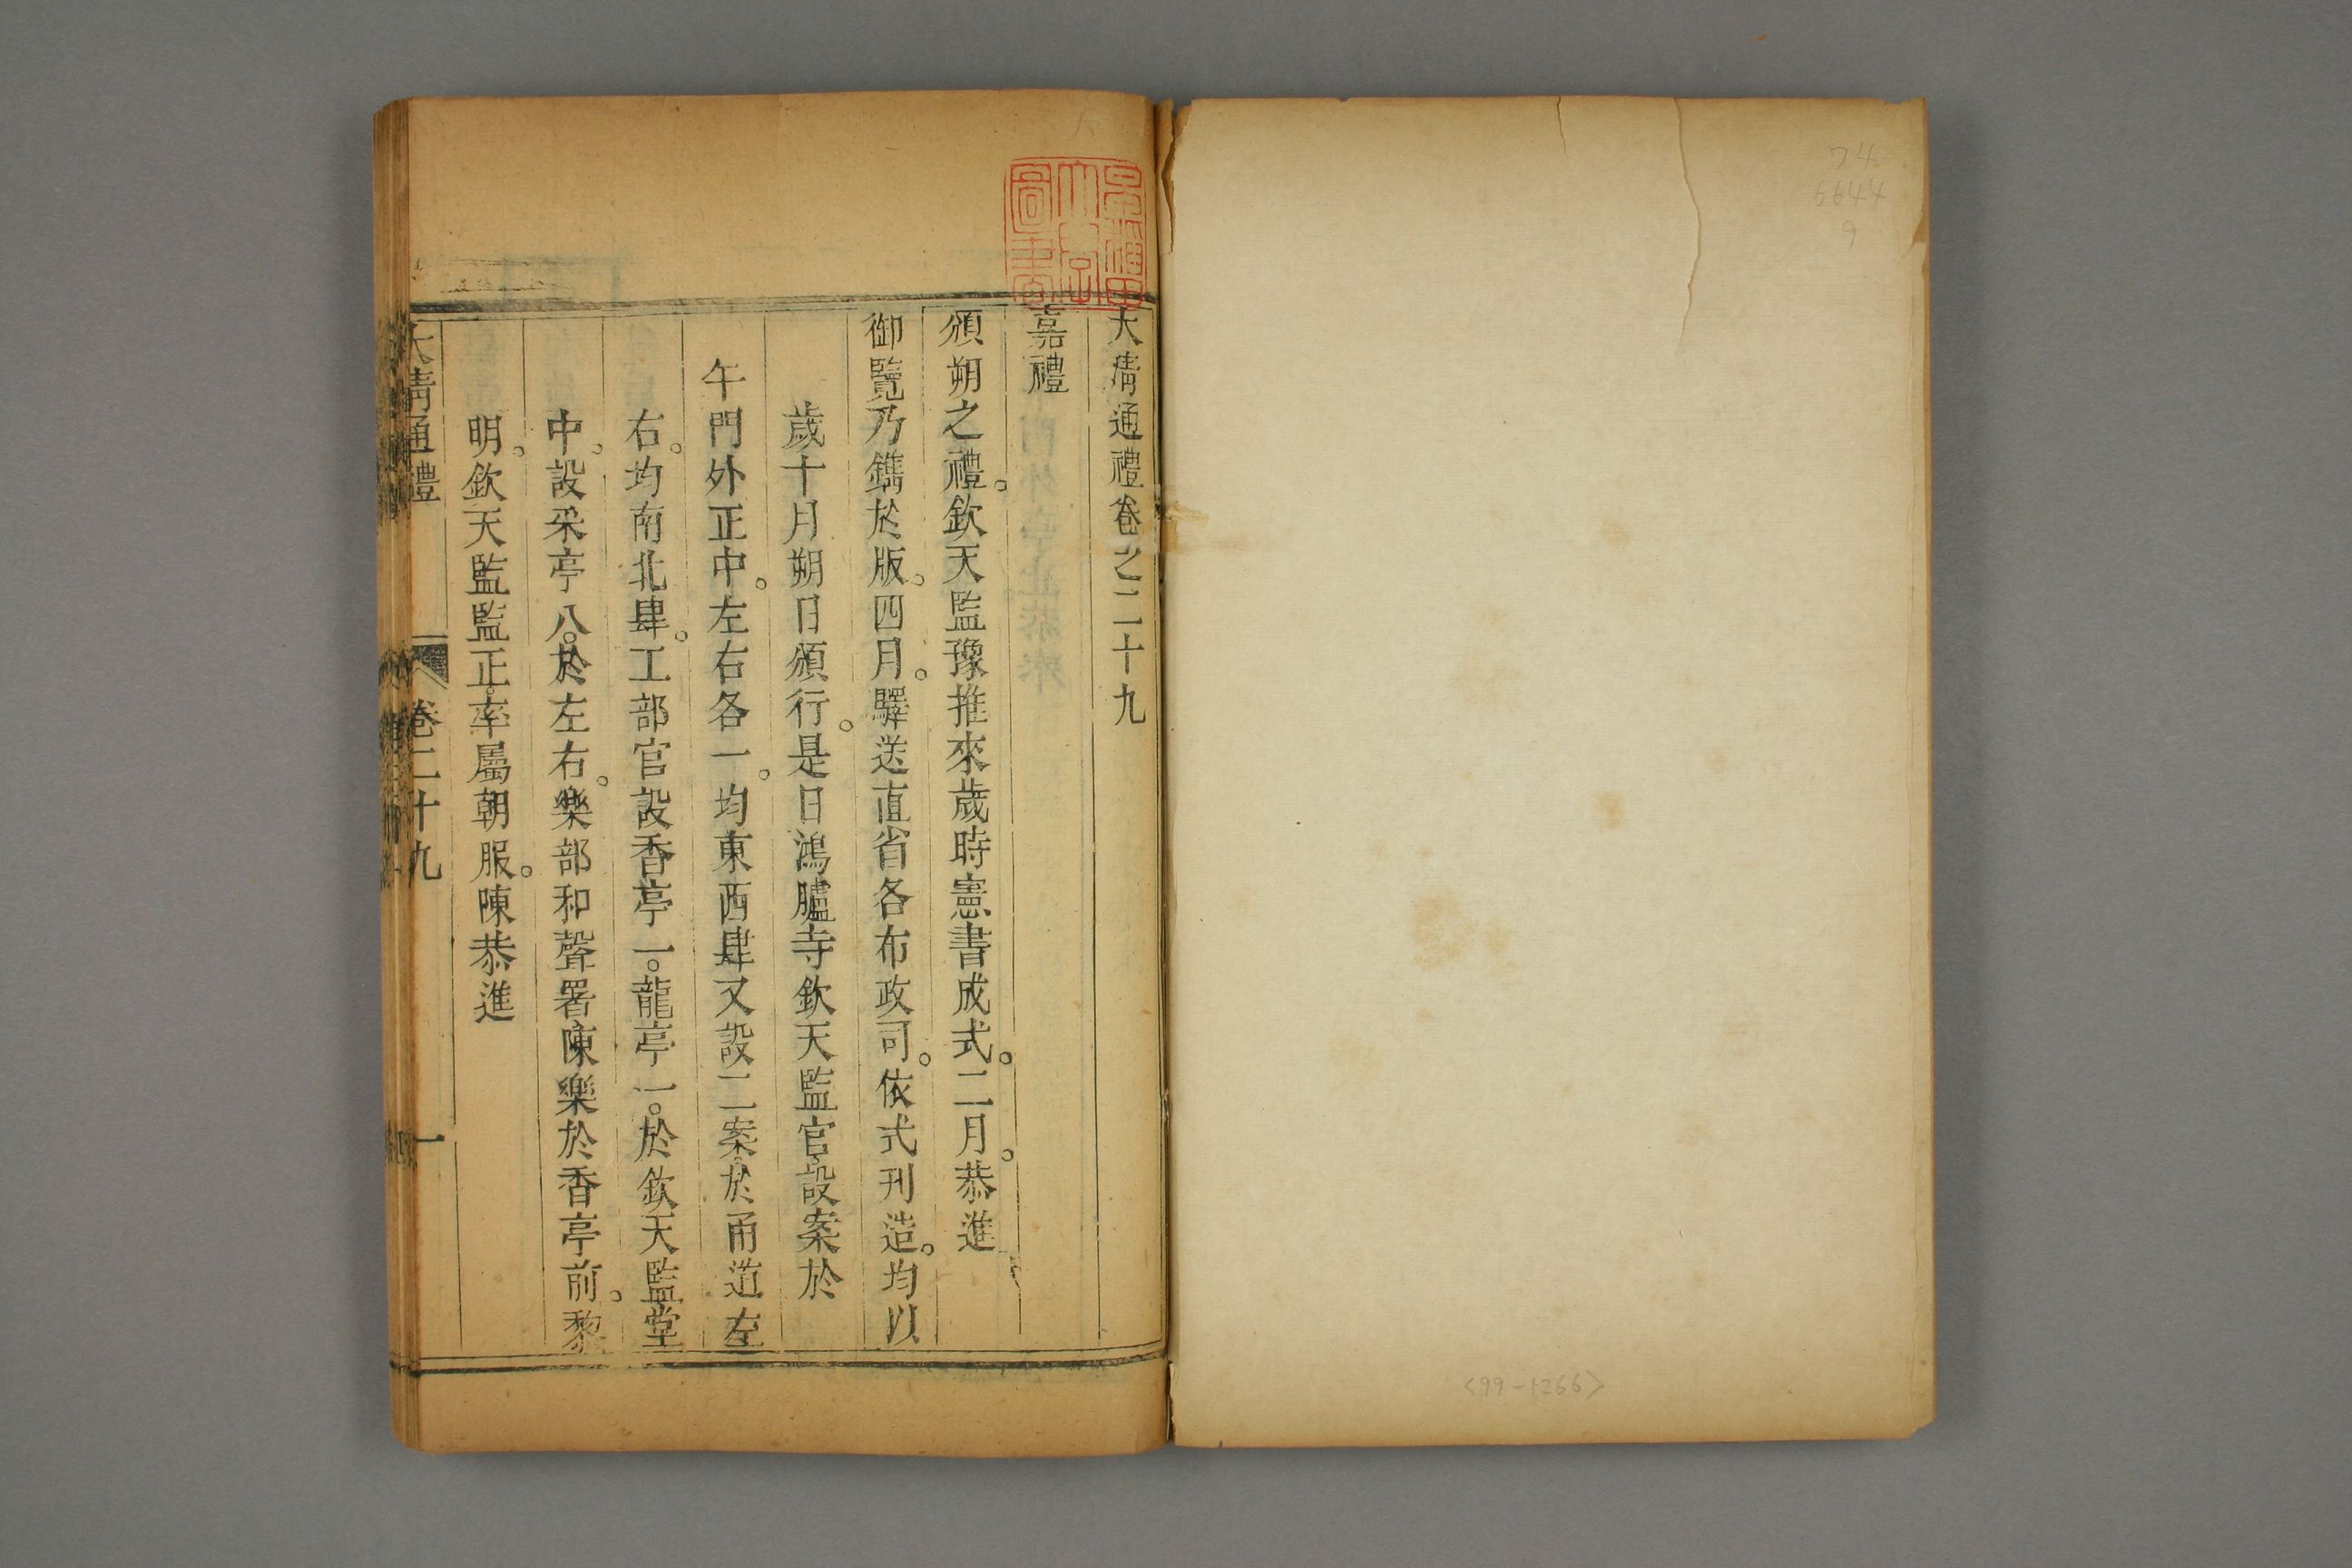 74
6644
9
<99-1266>
大淸通禮卷之二十九
嘉禮
頒朔之禮。欽天監豫推來歲時憲書成式。二月。恭進
御覽乃鐫於版。四月。驛送直省各布政司。依式刊造。均以
歲十月朔日頒行。是日鴻臚寺欽天監官設案於
午門外正中。左右各一。均東西肆又設二案。於甬道左
右。均南北肆。工部官設香亭一。龍亭一。於欽天監堂
中。設采亭八。於左右。樂部和聲署陳樂於香亭前。黎
明。欽天監監正。率屬朝服。陳恭進
大淸通禮 卷二十九 一